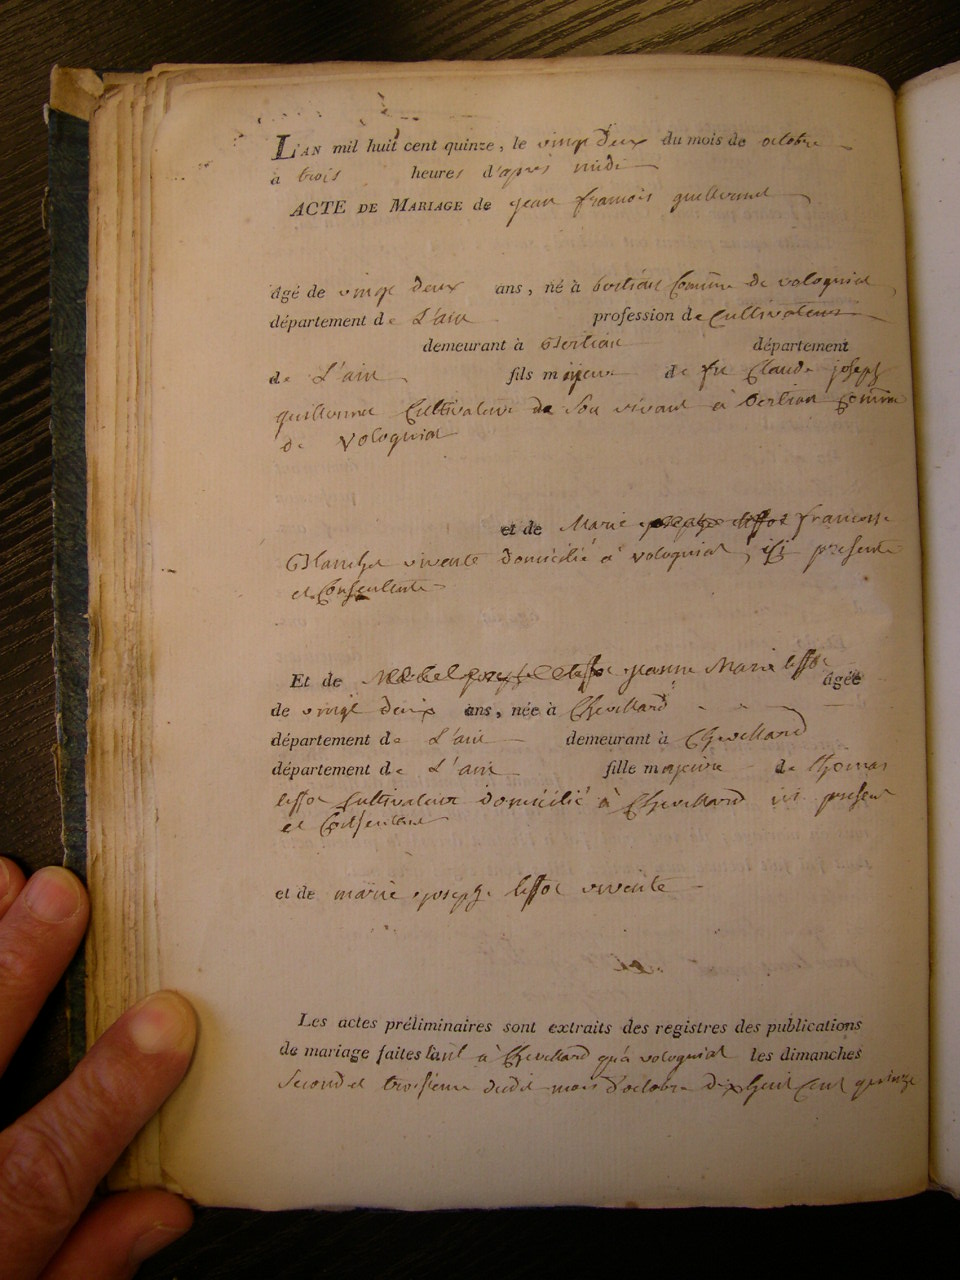 L'AN mil huit cent quinze, le vingt deux du mois de octobre
à trois heures d'apres midi
ACTE DE MARIAGE de jean francois guillermet
âgé de vingt deux ans, né à bertian Commune de vologniat
département de L'ain profession de Cultivateur
demeurant à Bertian département
de L'ain fils majeur de feu Claude joseph
guillermet Cultivateur de Son vivant à bertian Comune
de Vologniat
et de Marie josephe liffos francoise
Blanchet vivente domicilié à volognat, ici presente
et Consentente
Et de jeanne Marie liffoc agée
de vingt deux ans, née à Chevillard
département de L'ain demeurant à Chevillard
département de L'ain fille majeure de thomas
liffoc Cultivateur domicilié à Chevillard ici present
et Consentant
et de marie joseph liffoc vivente
Les actes préliminaires sont extraits des registres des publications
de mariage faites tant à Chevillard qu'à volognat les dimanches
Second et troisieme dudit mois d'octobre dix huit Cent quinze